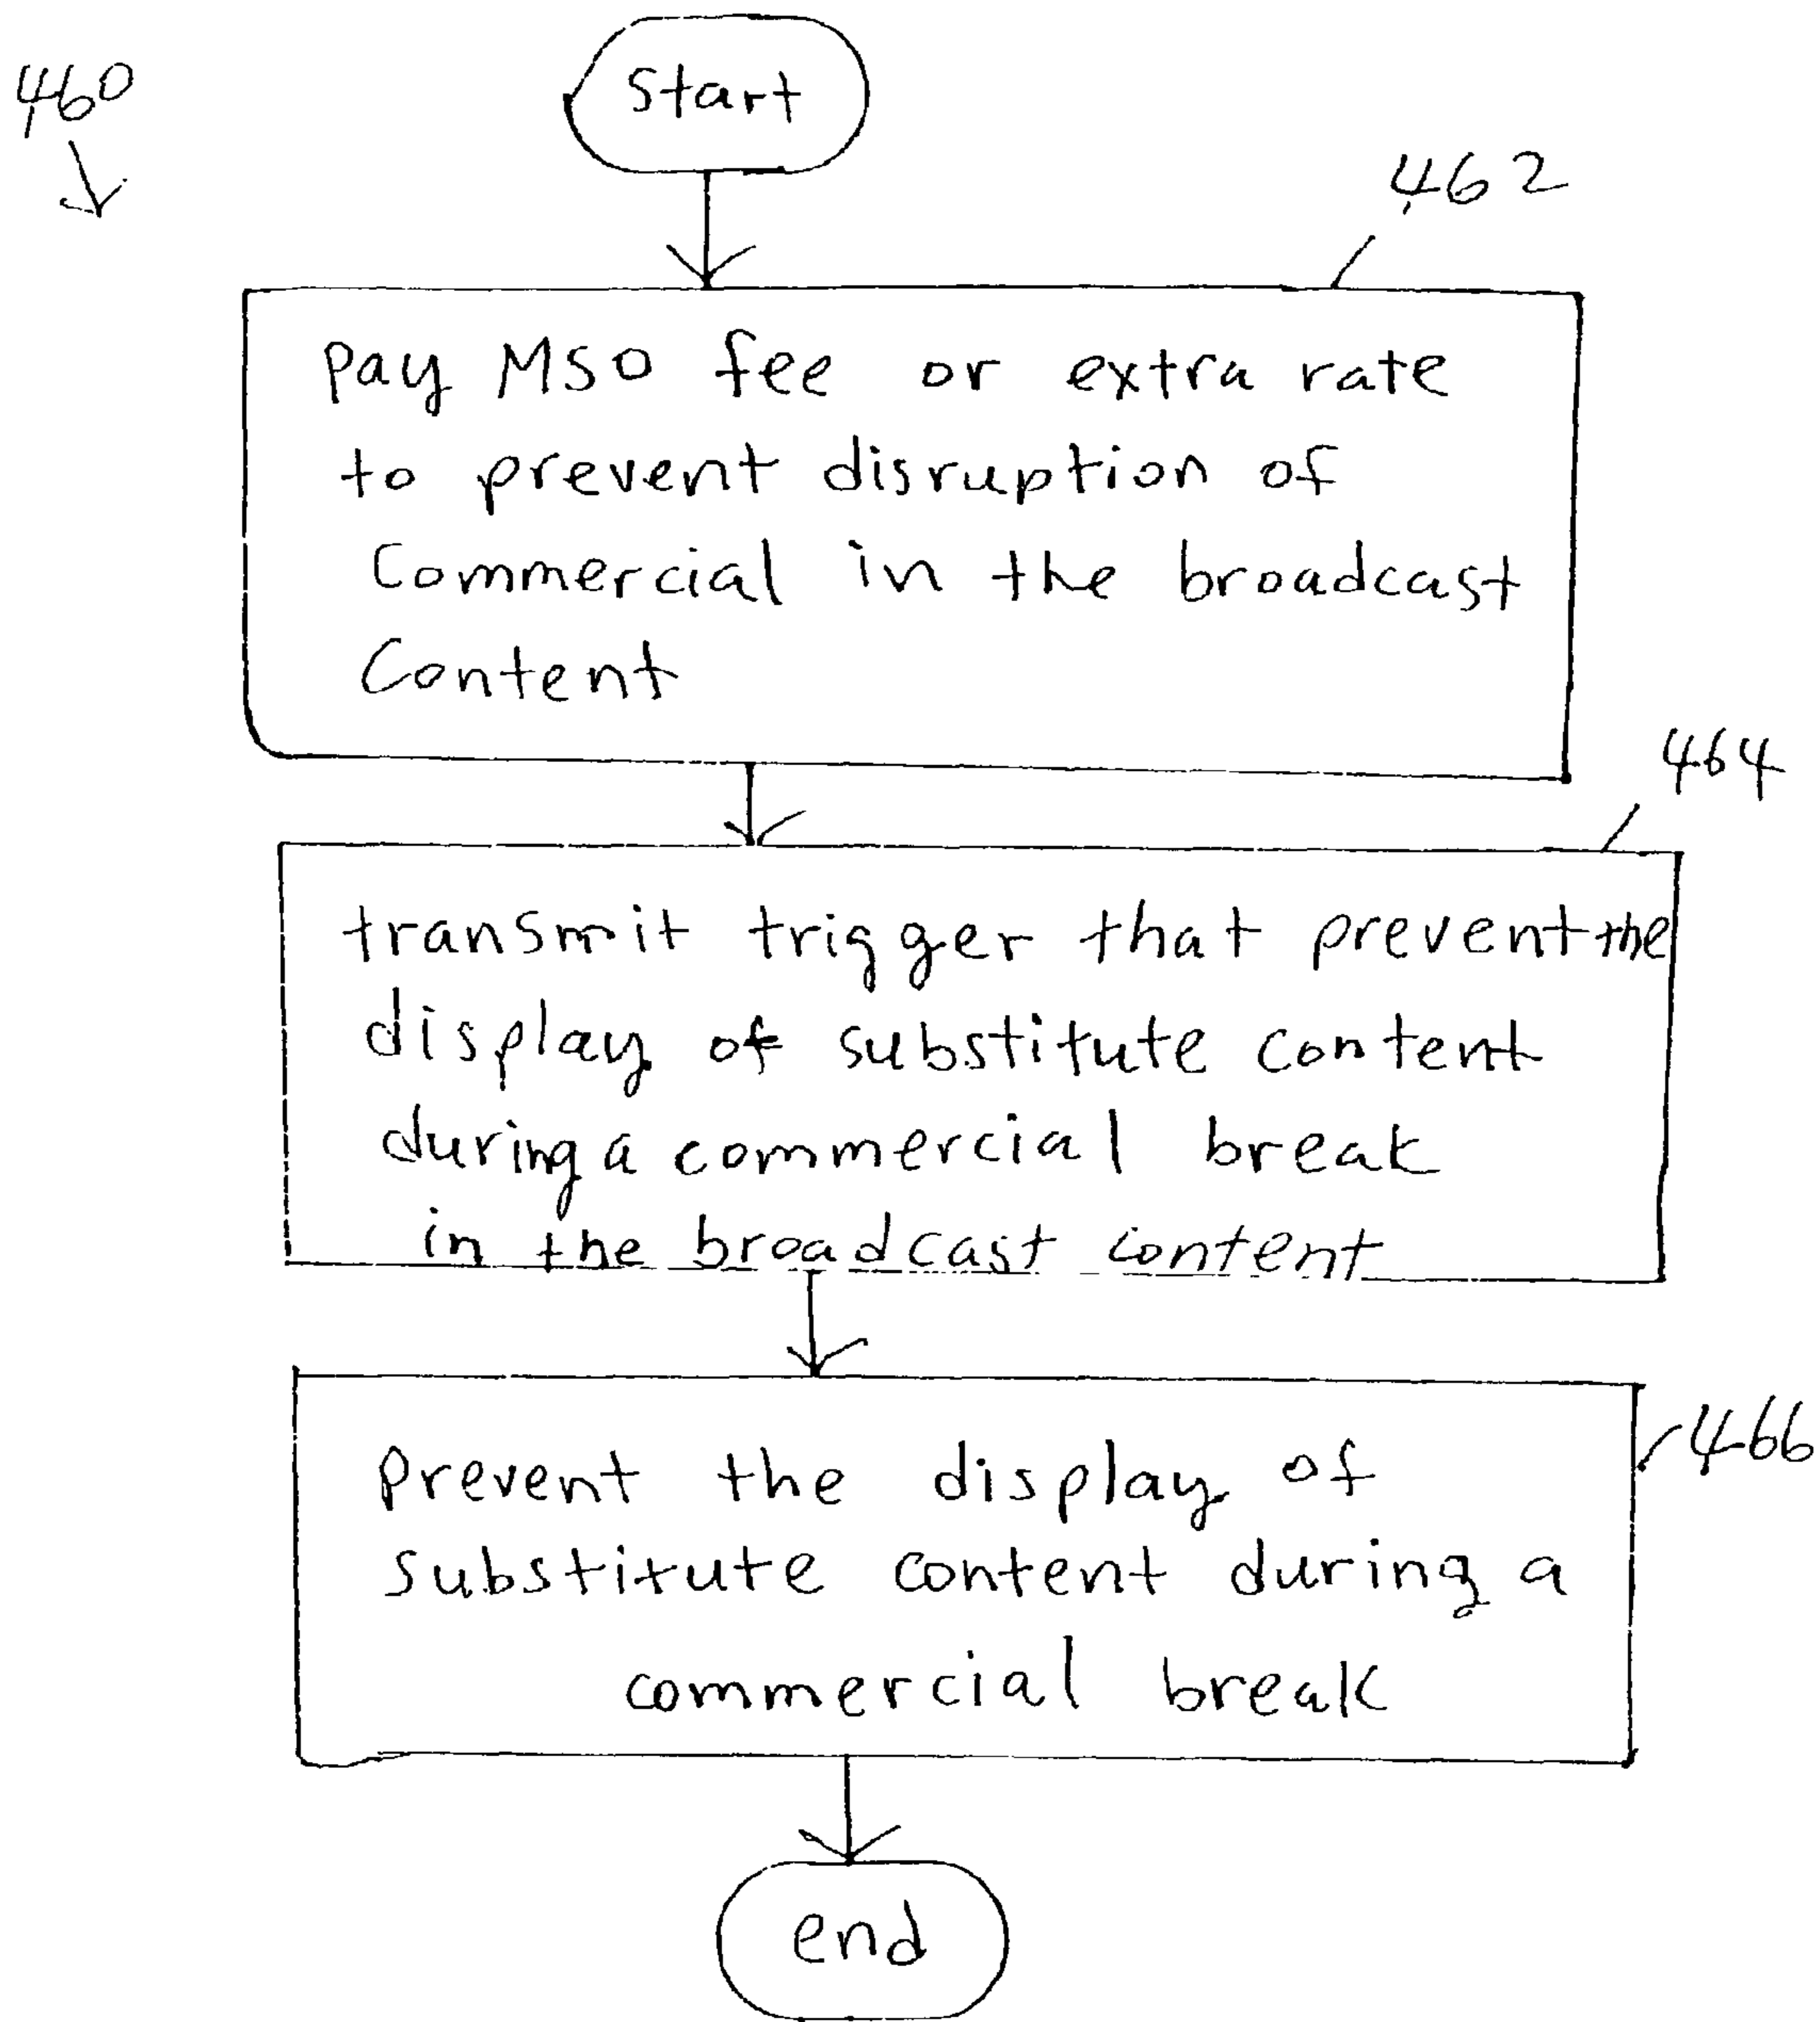 460
Start
462
pay MSO fee or extra rate
to prevent disruption of
Commercial in the broadcast
Content
464
transmit trigger that prevent the
display of substitute content
during a commercial break
in the broadcast content
466
prevent the display of
substitute content during a
commercial break
end